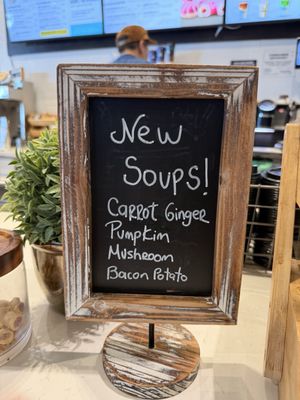 New
Soups!
Carrot Ginger
Pumpkin
Mushroom
Bacon Potato